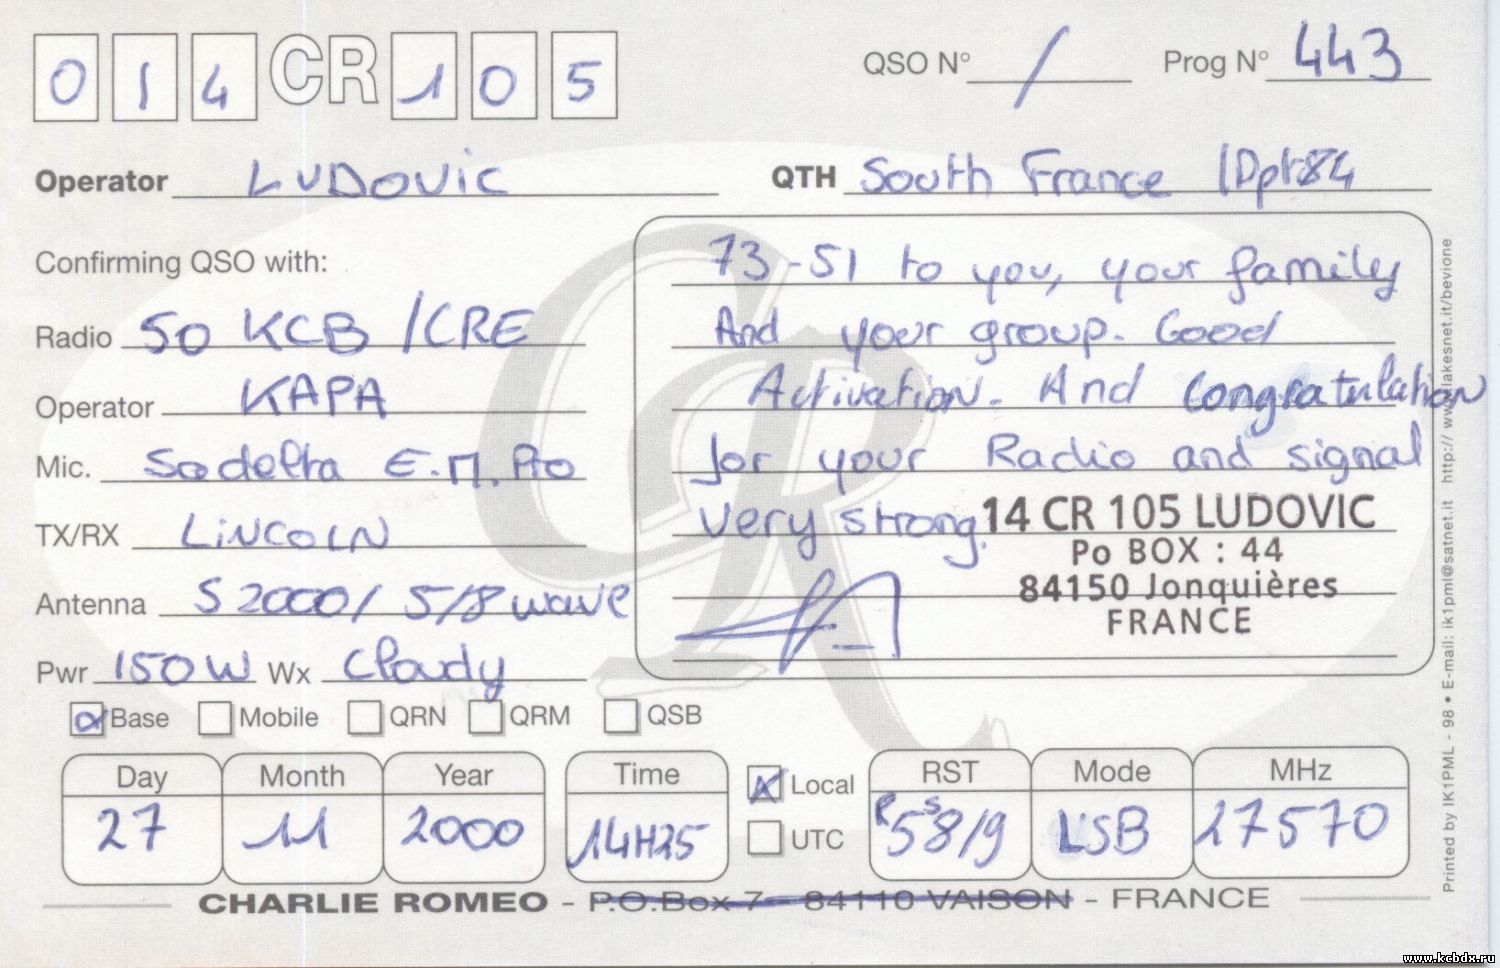 014 CR 105 QSO N° / Prog N° 443
Operator LUDOVIC QTH South France / Dpt 84
Confirming QSO with:
Radio 50 KCB / CRE
Operator KAPA
Mic. Sadelta E.M. Pro
TX/RX LINCOLN
Antenna S 2000 / 5/8 wave
Pwr 150W Wx Cloudy
73-51 to you, your family
And your group. Good
Activation. And Congratulation
for your Radio and signal
very strong.
14 CR 105 LUDOVIC
Po BOX : 44
84150 Jonquières
FRANCE
Base Mobile QRN QRM QSB
Day Month Year Time Local UTC RST Mode MHz
27 11 2000 14H25 R5 S8/9 LSB 27570
CHARLIE ROMEO - P.O.Box 7 - 84110 VAISON - FRANCE
Printed by IK1PML - 98 • E-mail: ik1pml@satnet.it http://www.lakesnet.it/bevione
www.kcbdx.ru